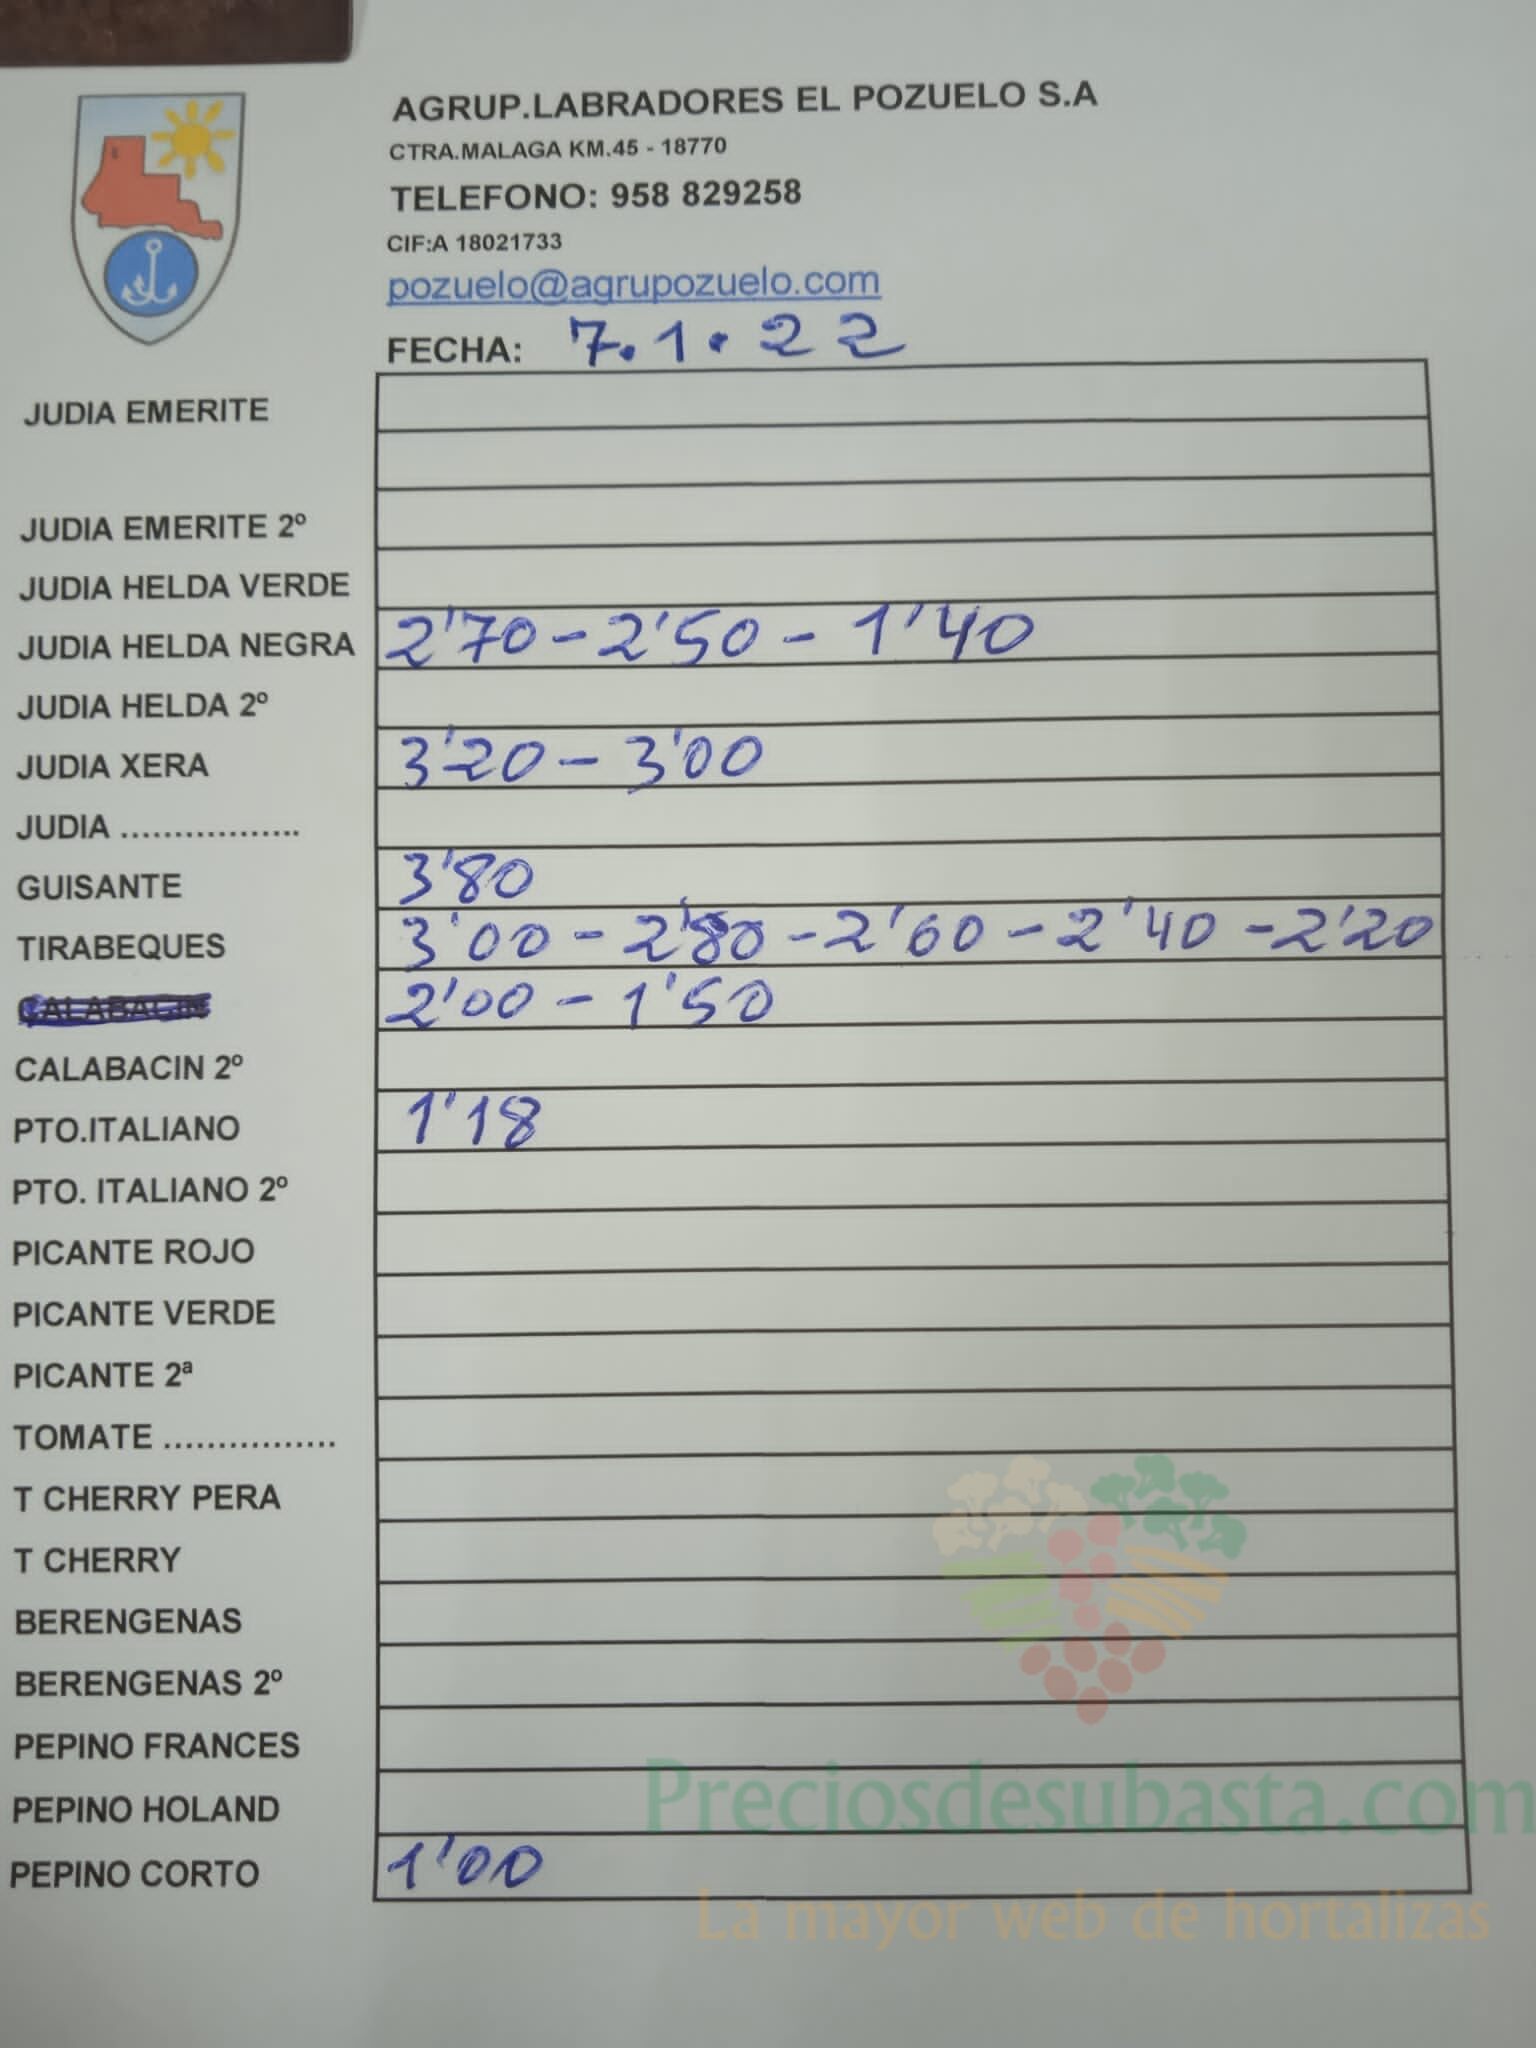 AGRUP.LABRADORES EL POZUELO S.A
CTRA.MALAGA KM.45 - 18770
TELEFONO: 958 829258
CIF:A 18021733
pozuelo@agrupozuelo.com
FECHA: 7.1.22
JUDIA EMERITE
JUDIA EMERITE 2º
JUDIA HELDA VERDE
JUDIA HELDA NEGRA 2'70 - 2'50 - 1'40
JUDIA HELDA 2º
JUDIA XERA 3'20 - 3'00
JUDIA .................
GUISANTE 3'80
TIRABEQUES 3'00 - 2'80 - 2'60 - 2'40 - 2'20
CALABACIN 2'00 - 1'50
CALABACIN 2º
PTO.ITALIANO 1'18
PTO. ITALIANO 2º
PICANTE ROJO
PICANTE VERDE
PICANTE 2ª
TOMATE ................
T CHERRY PERA
T CHERRY
BERENGENAS
BERENGENAS 2º
PEPINO FRANCES
PEPINO HOLAND
PEPINO CORTO 1'00
Preciosdesubasta.com
La mayor web de hortalizas